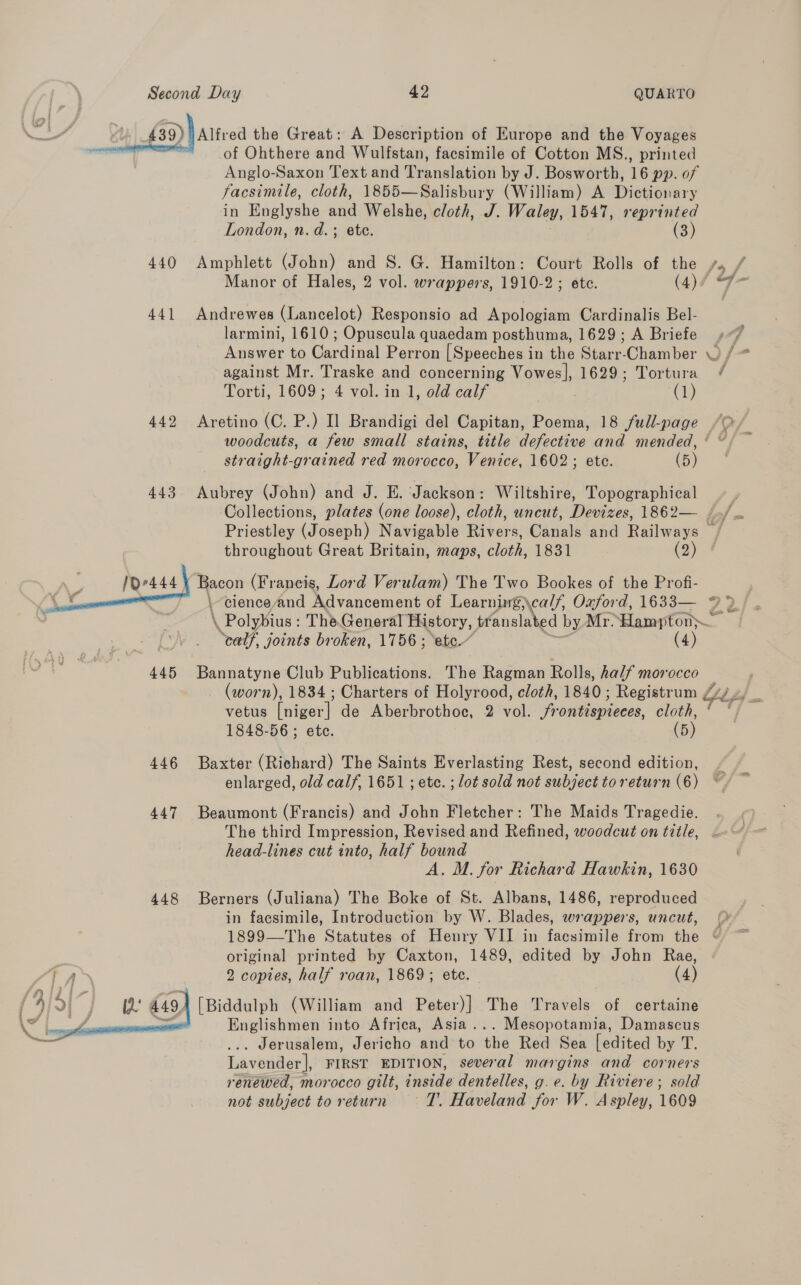 Second Day 42 QUARTO
439 Alfred the Great: A Description of Europe and the Voyages
of Ohthere and Wulfstan, facsimile of Cotton MS., printed
Anglo-Saxon Text and Translation by J. Bosworth, 16 pp. of
facsimile, cloth, 1855—Salisbury (William) A Dictionary
in Englyshe and Welshe, cloth, J. Waley, 1547, reprinted
London, n.d.; etc. (3)
440 Amphlett (John) and S. G. Hamilton: Court Rolls of the
Manor of Hales, 2 vol. wrappers, 1910-2; etc. (4)
441 Andrewes (Lancelot) Responsio ad Apologiam Cardinalis Bel-
larmini, 1610; Opuscula quaedam posthuma, 1629; A Briefe
Answer to Cardinal Perron [Speeches in the Starr-Chamber
against Mr. Traske and concerning Vowes], 1629; Tortura
Torti, 1609; 4 vol. in 1, old calf (1)
442 Aretino (C. P.) Il Brandigi del Capitan, Poema, 18 full-page
woodcuts, a few small stains, title defective and mended,
straight-grained red morocco, Venice, 1602; etc. (5)
443 Aubrey (John) and J. E. Jackson: Wiltshire, Topographical
Collections, plates (one loose), cloth, uncut, Devizes, 1862—
Priestley (Joseph) Navigable Rivers, Canals and Railways
throughout Great Britain, maps, cloth, 1831 (2)
444 Bacon (Francis, Lord Verulam) The Two Bookes of the Profi-
cience and Advancement of Learning, calf, Oxford, 1633—
Polybius: The General History, translated by Mr. Hampton,
calf, joints broken, 1756; etc. (4)
445 Bannatyne Club Publications. The Ragman Rolls, half morocco
(worn), 1834; Charters of Holyrood, cloth, 1840; Registrum
vetus [niger] de Aberbrothoc, 2 vol. frontispieces, cloth,
1848-56; etc. (5)
446 Baxter (Richard) The Saints Everlasting Rest, second edition,
enlarged, old calf, 1651; etc.; lot sold not subject to return (6)
447 Beaumont (Francis) and John Fletcher: The Maids Tragedie.
The third Impression, Revised and Refined, woodcut on title,
head-lines cut into, half bound
A. M. for Richard Hawkin, 1630
448 Berners (Juliana) The Boke of St. Albans, 1486, reproduced
in facsimile, Introduction by W. Blades, wrappers, uncut,
1899—The Statutes of Henry VII in facsimile from the
original printed by Caxton, 1489, edited by John Rae,
2 copies, half roan, 1869; etc. (4)
449 [Biddulph (William and Peter)] The Travels of certaine
Englishmen into Africa, Asia ... Mesopotamia, Damascus
... Jerusalem, Jericho and to the Red Sea [edited by T.
Lavender], FIRST EDITION, several margins and corners
renewed, morocco gilt, inside dentelles, g. e. by Riviere; sold
not subject to return T. Haveland for W. Aspley, 1609